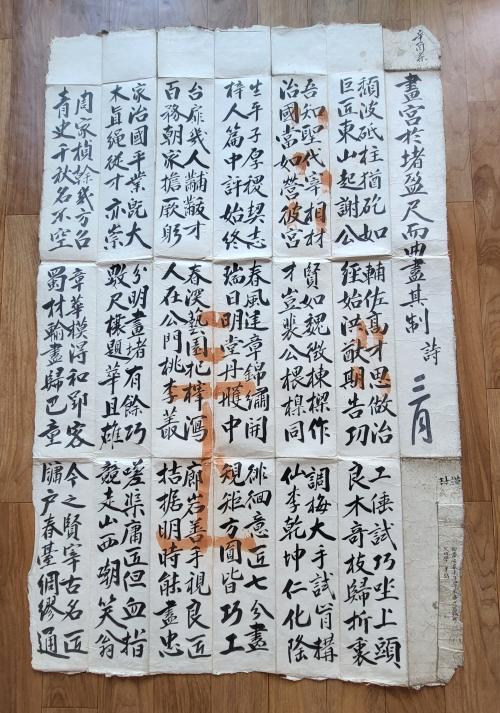 畫宮於堵盈尺而曲盡其制 詩
頹波砥柱猶矻如
巨匠東山起謝公
輔佐高才思做治
經始洪猷期告功
工倕試巧坐上頭
良木奇枝歸折衷
吾知聖代宰相材
治國當如營彼宮
賢如魏徵棟樑作
才豈裴公椳闑同
調梅大手試肯構
仙李乾坤仁化隆
生平子厚稷契志
梓人篇中評始終
春風建章錦繡開
瑞日明堂丹雘中
徘徊意匠七分畫
規矩方圓皆巧工
台扉幾人黼黻才
百務朝家擔厥躬
春深藝園杞梓
人在公門桃李叢
廊岩善手視良匠
拮据明時能盡忠
家治國平業旣大
木直繩從才亦崇
分明畫堵有餘巧
數尺榱題華且雄
嗟渠庸匠但血指
競走山西朝笑翁
周家楨榦幾方召
靑史千秋名不空
章華模得和郢客
蜀材輸盡歸巴童
今之賢宰古名匠
牖戶春臺綢繆通